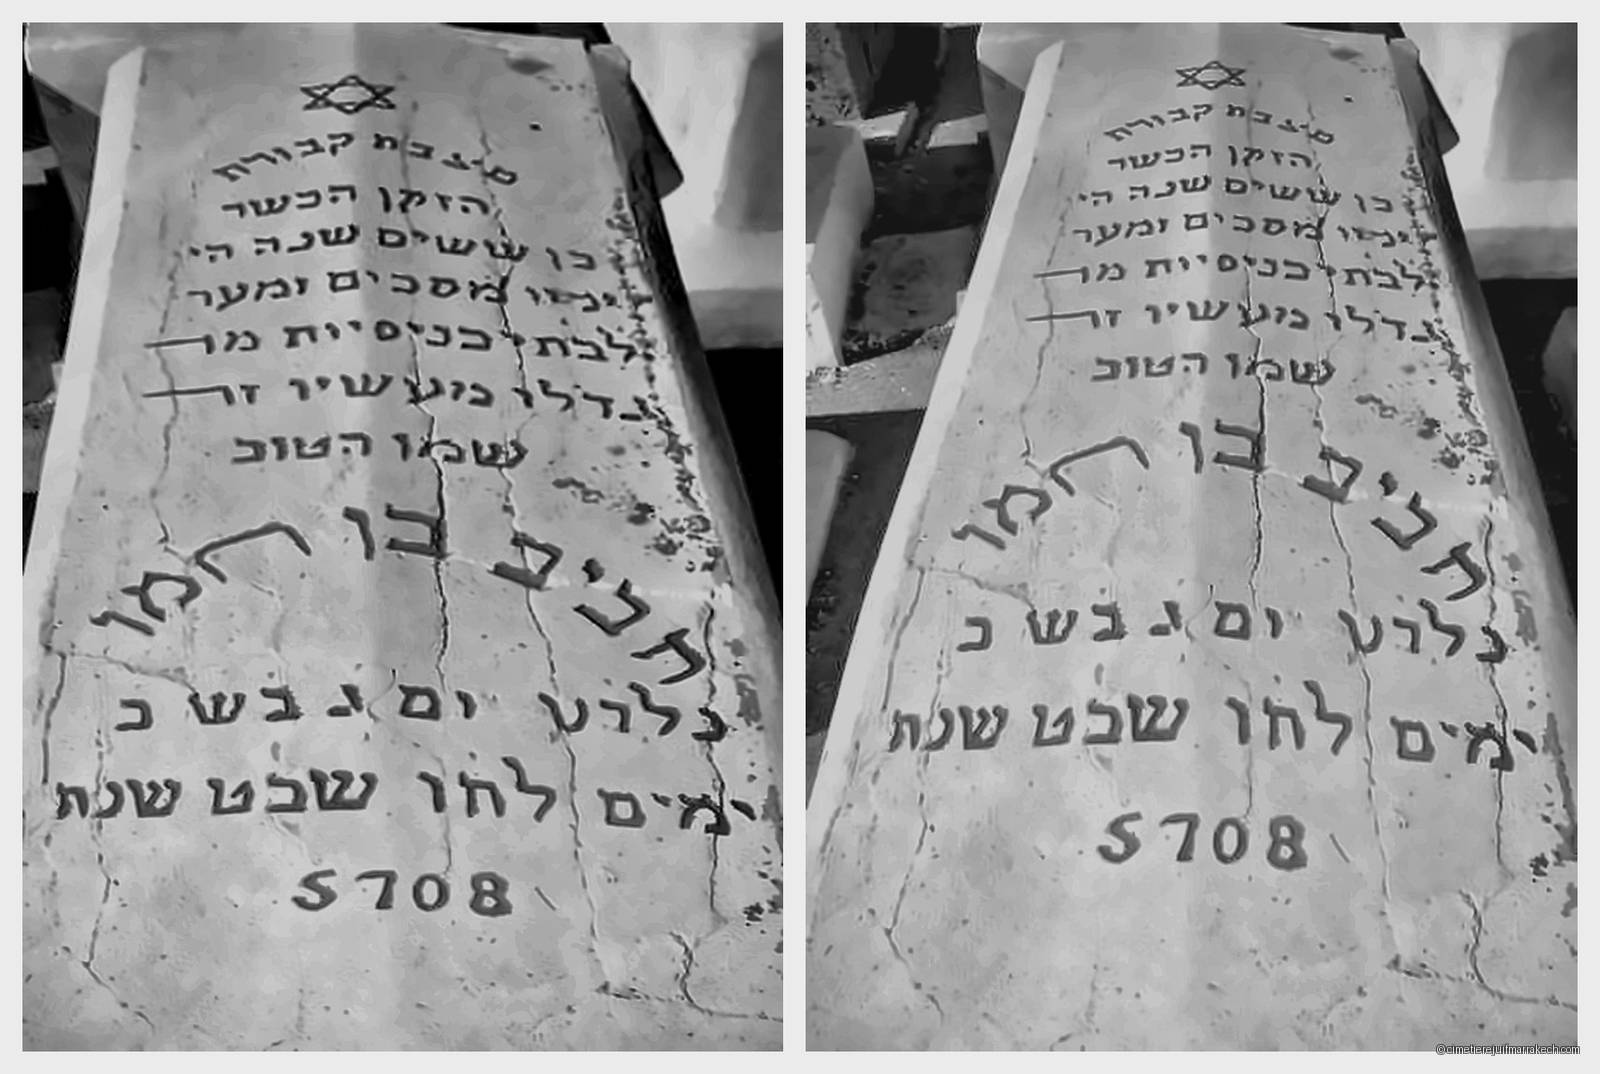 מצבת קבורת
הזקן הכשר
בן ששים שנה הי
מסכים ומער
לבתי כניסיות מר
גדלו מעשיו זר
שמו הטוב
חביב בן חמו
יום ג בש כ
ימים לחו שבט שנת
5708
מצבת קבורת
הזקן הכשר
בן ששים שנה הי
מסכים ומער
לבתי כניסיות מר
גדלו מעשיו זר
שמו הטוב
חביב בן חמו
יום ג בש כ
ימים לחו שבט שנת
5708
©cimetierejuifmarrakech.com